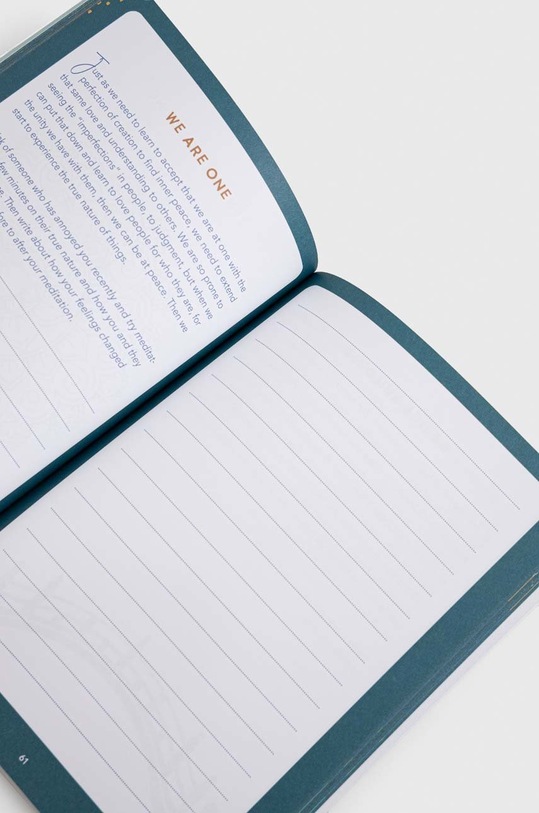 WE ARE ONE
Just as we need to learn to accept that we are at one with the
perfection of creation to find inner peace, we need to extend
that same love and understanding to others. We are so prone to
seeing the "imperfections" in people, to judgment, but when we
can put that down and learn to love people for who they are, for
the unity we have with them, then we can be at peace. Then we
start to experience the true nature of things.
of someone who has annoyed you recently and try meditat-
few minutes on their true nature and how you and they
Then write about how your feelings changed
to after your meditation.
61